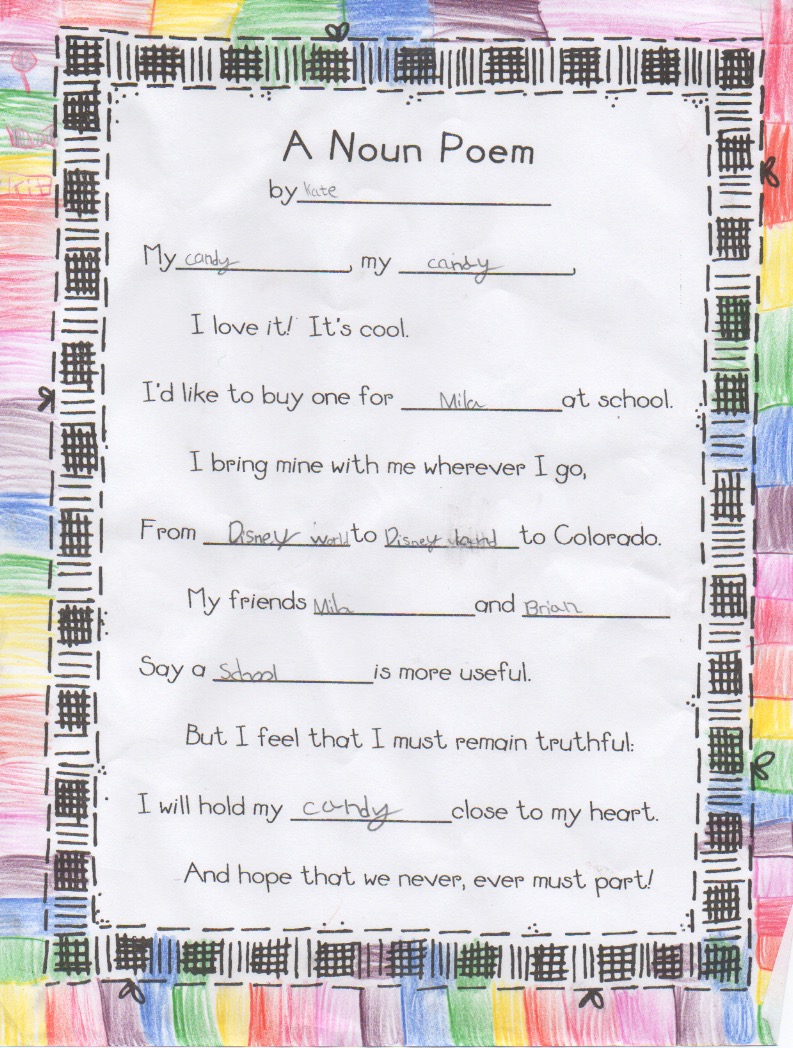 A Noun Poem
by Kate
My candy, my candy,
I love it! It's cool.
I'd like to buy one for Mila at school.
I bring mine with me wherever I go,
From Disney world to Disney to Colorado.
My friends Mila and Brian
Say a School is more useful.
But I feel that I must remain truthful:
I will hold my candy close to my heart.
And hope that we never, ever must part!